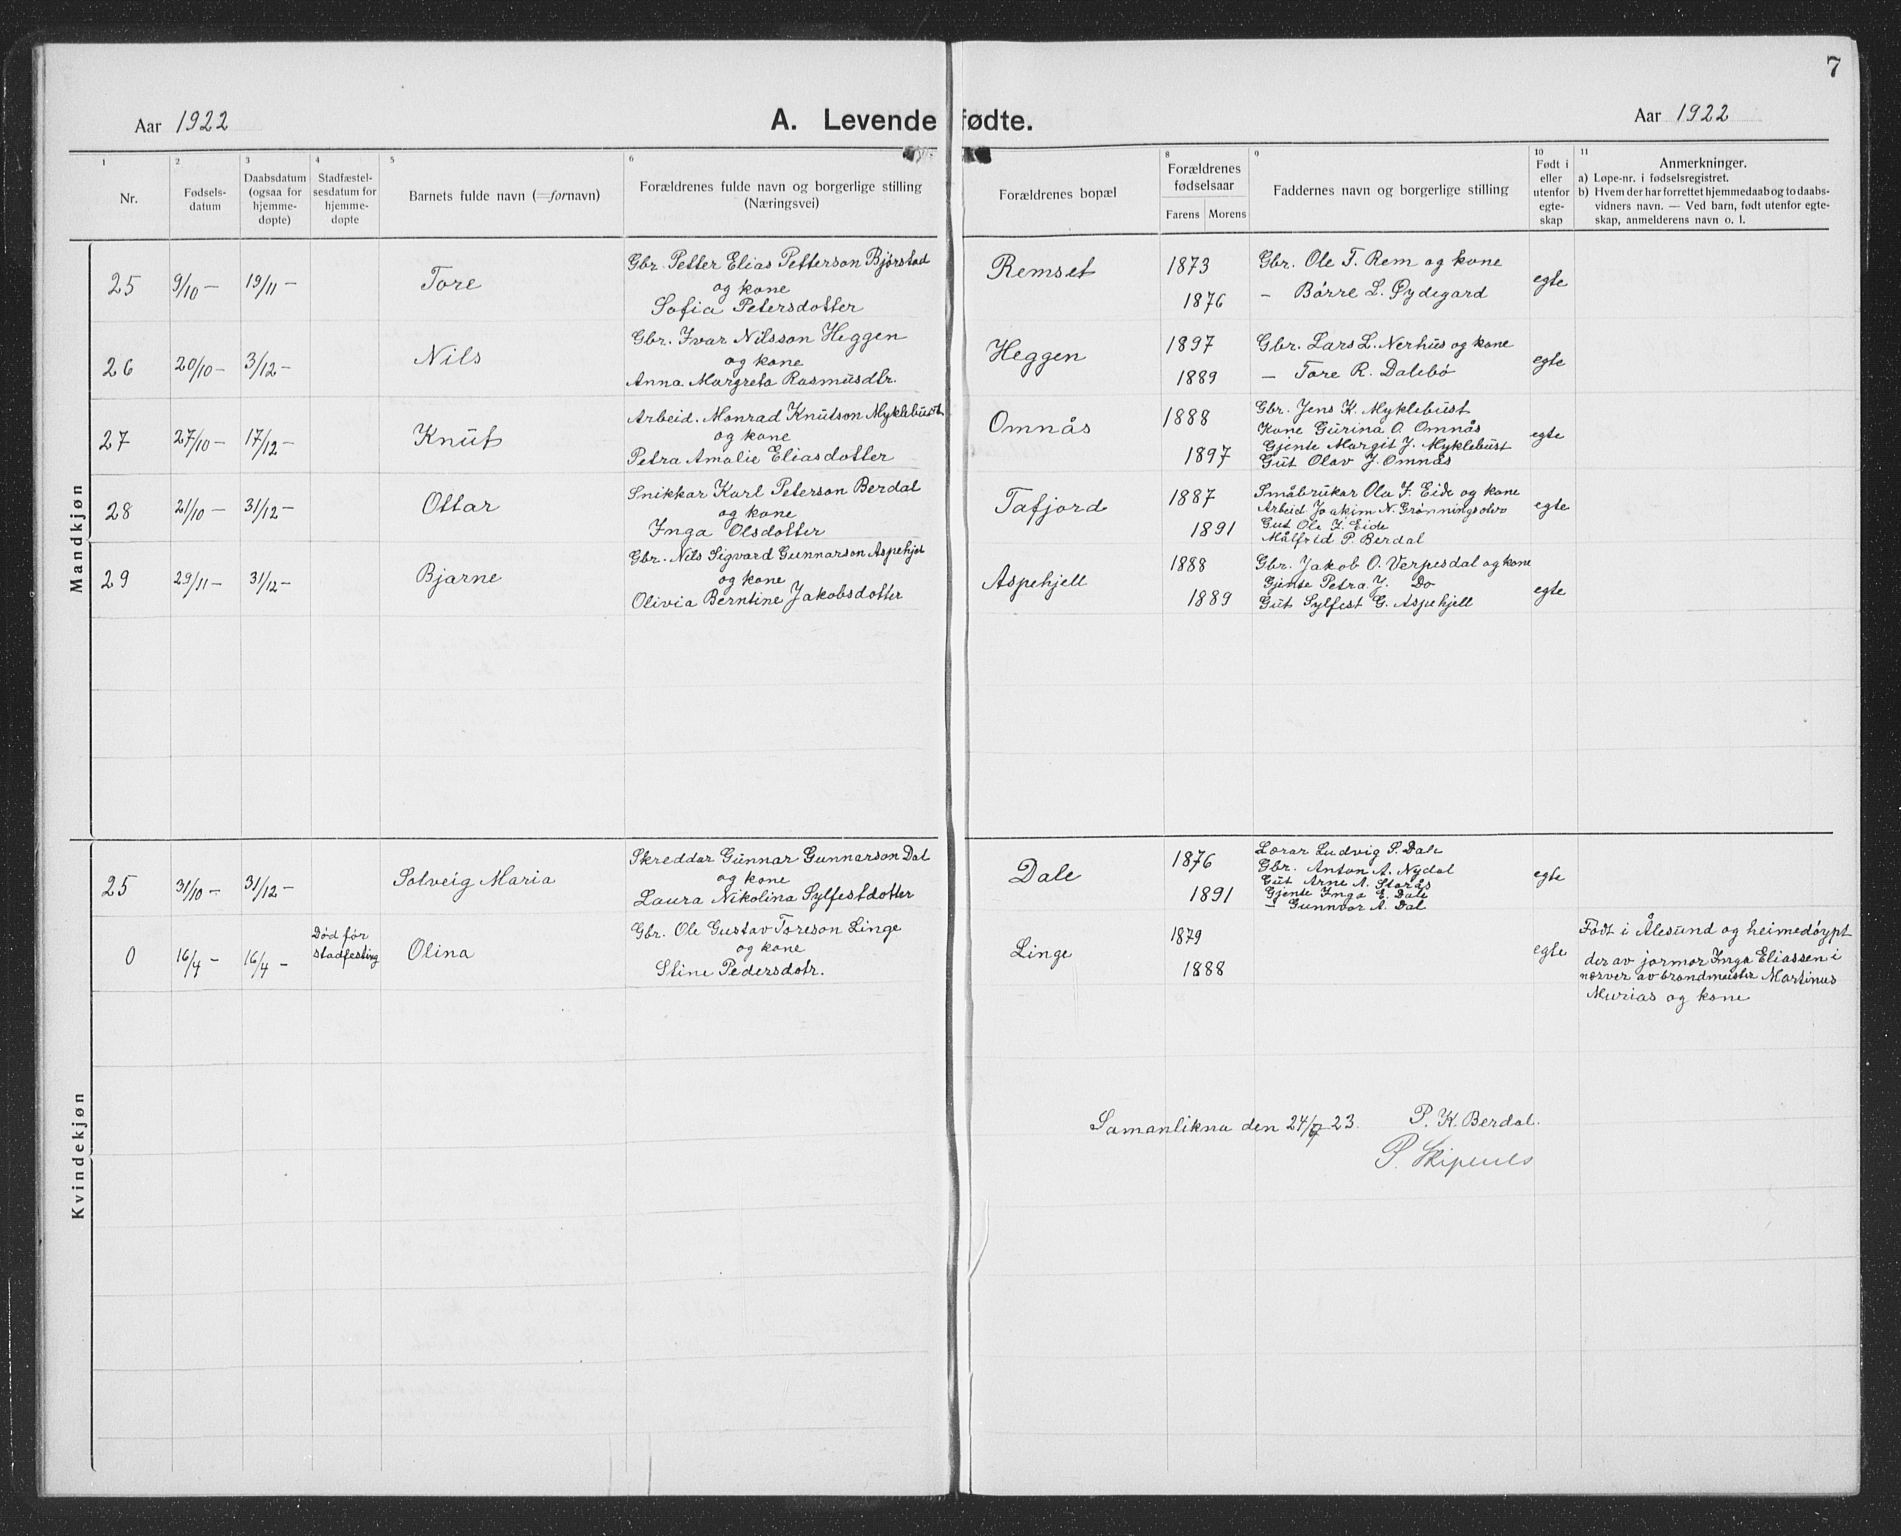 7
Aar 1922
A. Levende fødte.
Aar 1922
1 2 3 4 5 6 8 9 10 11
Nr.
Fødsels-
datum
Daabsdatum
(ogsaa for
hjemme-
døpte)
Stadfæstel-
sesdatum for
hjemme-
døpte
Barnets fulde navn (=fornavn)
Forældrenes fulde navn og borgerlige stilling
(Næringsvei)
Forældrenes bopæl
Forældrenes
fødselsaar
Farens Morens
Faddernes navn og borgerlige stilling
Født i
eller
utenfor
egte-
skap
Anmerkninger.
a) Løpe-nr. i fødselsregistret.
b) Hvem der har forrettet hjemmedaab og to daabs-
vidners navn. — Ved barn, født utenfor egte-
skap, anmelderens navn o. l.
Mandkjøn
25 9/10 — 19/11 — Tore
Gbr. Petter Elias Petterson Bjørstad
og kone
Sofia Petersdotter
Remset
1873
1876
Gbr. Ole T. Rem og kone
— Børre L. Øydegard
egte
26 20/10 — 3/12 — Nils
Gbr. Ivar Nilsson Heggen
og kone
Anna Margreta Rasmusdtr.
Heggen
1897
1889
Gbr. Lars L. Nerhus og kone
— Tore R. Dalebø
egte
27 27/10 — 17/12 — Knut
Arbeid. Monrad Knutson Myklebust
og kone
Petra Amalie Eliasdotter
Omnås
1888
1897
Gbr. Jens K. Myklebust
Kone Gurina O. Omnås
Gjente Margit J. Myklebust
Gut Olav J. Omnås
egte
28 21/10 — 31/12 — Ottar
Snikkar Karl Peterson Berdal
og kone
Inga Olsdotter
Tafjord
1887
1891
Småbrukar Ola I. Eide og kone
Arbeid Joakim N. Grønningsæter
Gut Ole I. Eide
Målfrid P. Berdal
egte
29 29/11 — 31/12 — Bjarne
Gbr. Nils Sigvard Gunnarson Aspehjel
og kone
Olivia Berntine Jakobsdotter
Aspehjell
1888
1889
Gbr. Jakob O. Verpesdal og kone
Gjente Petra J. Do
Gut Sylfest G. Aspehjell
egte
Kvindekjøn
25 31/10 — 31/12 — Solveig Maria
Skreddar Gunnar Gunnarson Dal
og kone
Laura Nikolina Sylfestdotter
Dale
1876
1891
Lærar Ludvig P. Dale
Gbr. Anton A. Nydal
Gut Arne A. Storås
Gjente Inga E. Dale
— Gunnvor A. Dal
egte
0 16/4 — 16/4 —
Død før
stadfesting
Olina
Gbr. Ole Gustav Toreson Linge
og kone
Stine Pedersdotr.
Linge
1879
1888
egte
Født i Ålesund og heimedøypt
der av jormor Inga Eliassen i
nærver av brandmeister Martinus
Murias og kone
Samanlikna den 24/7 23. P. K. Berdal.
P. Skipenes